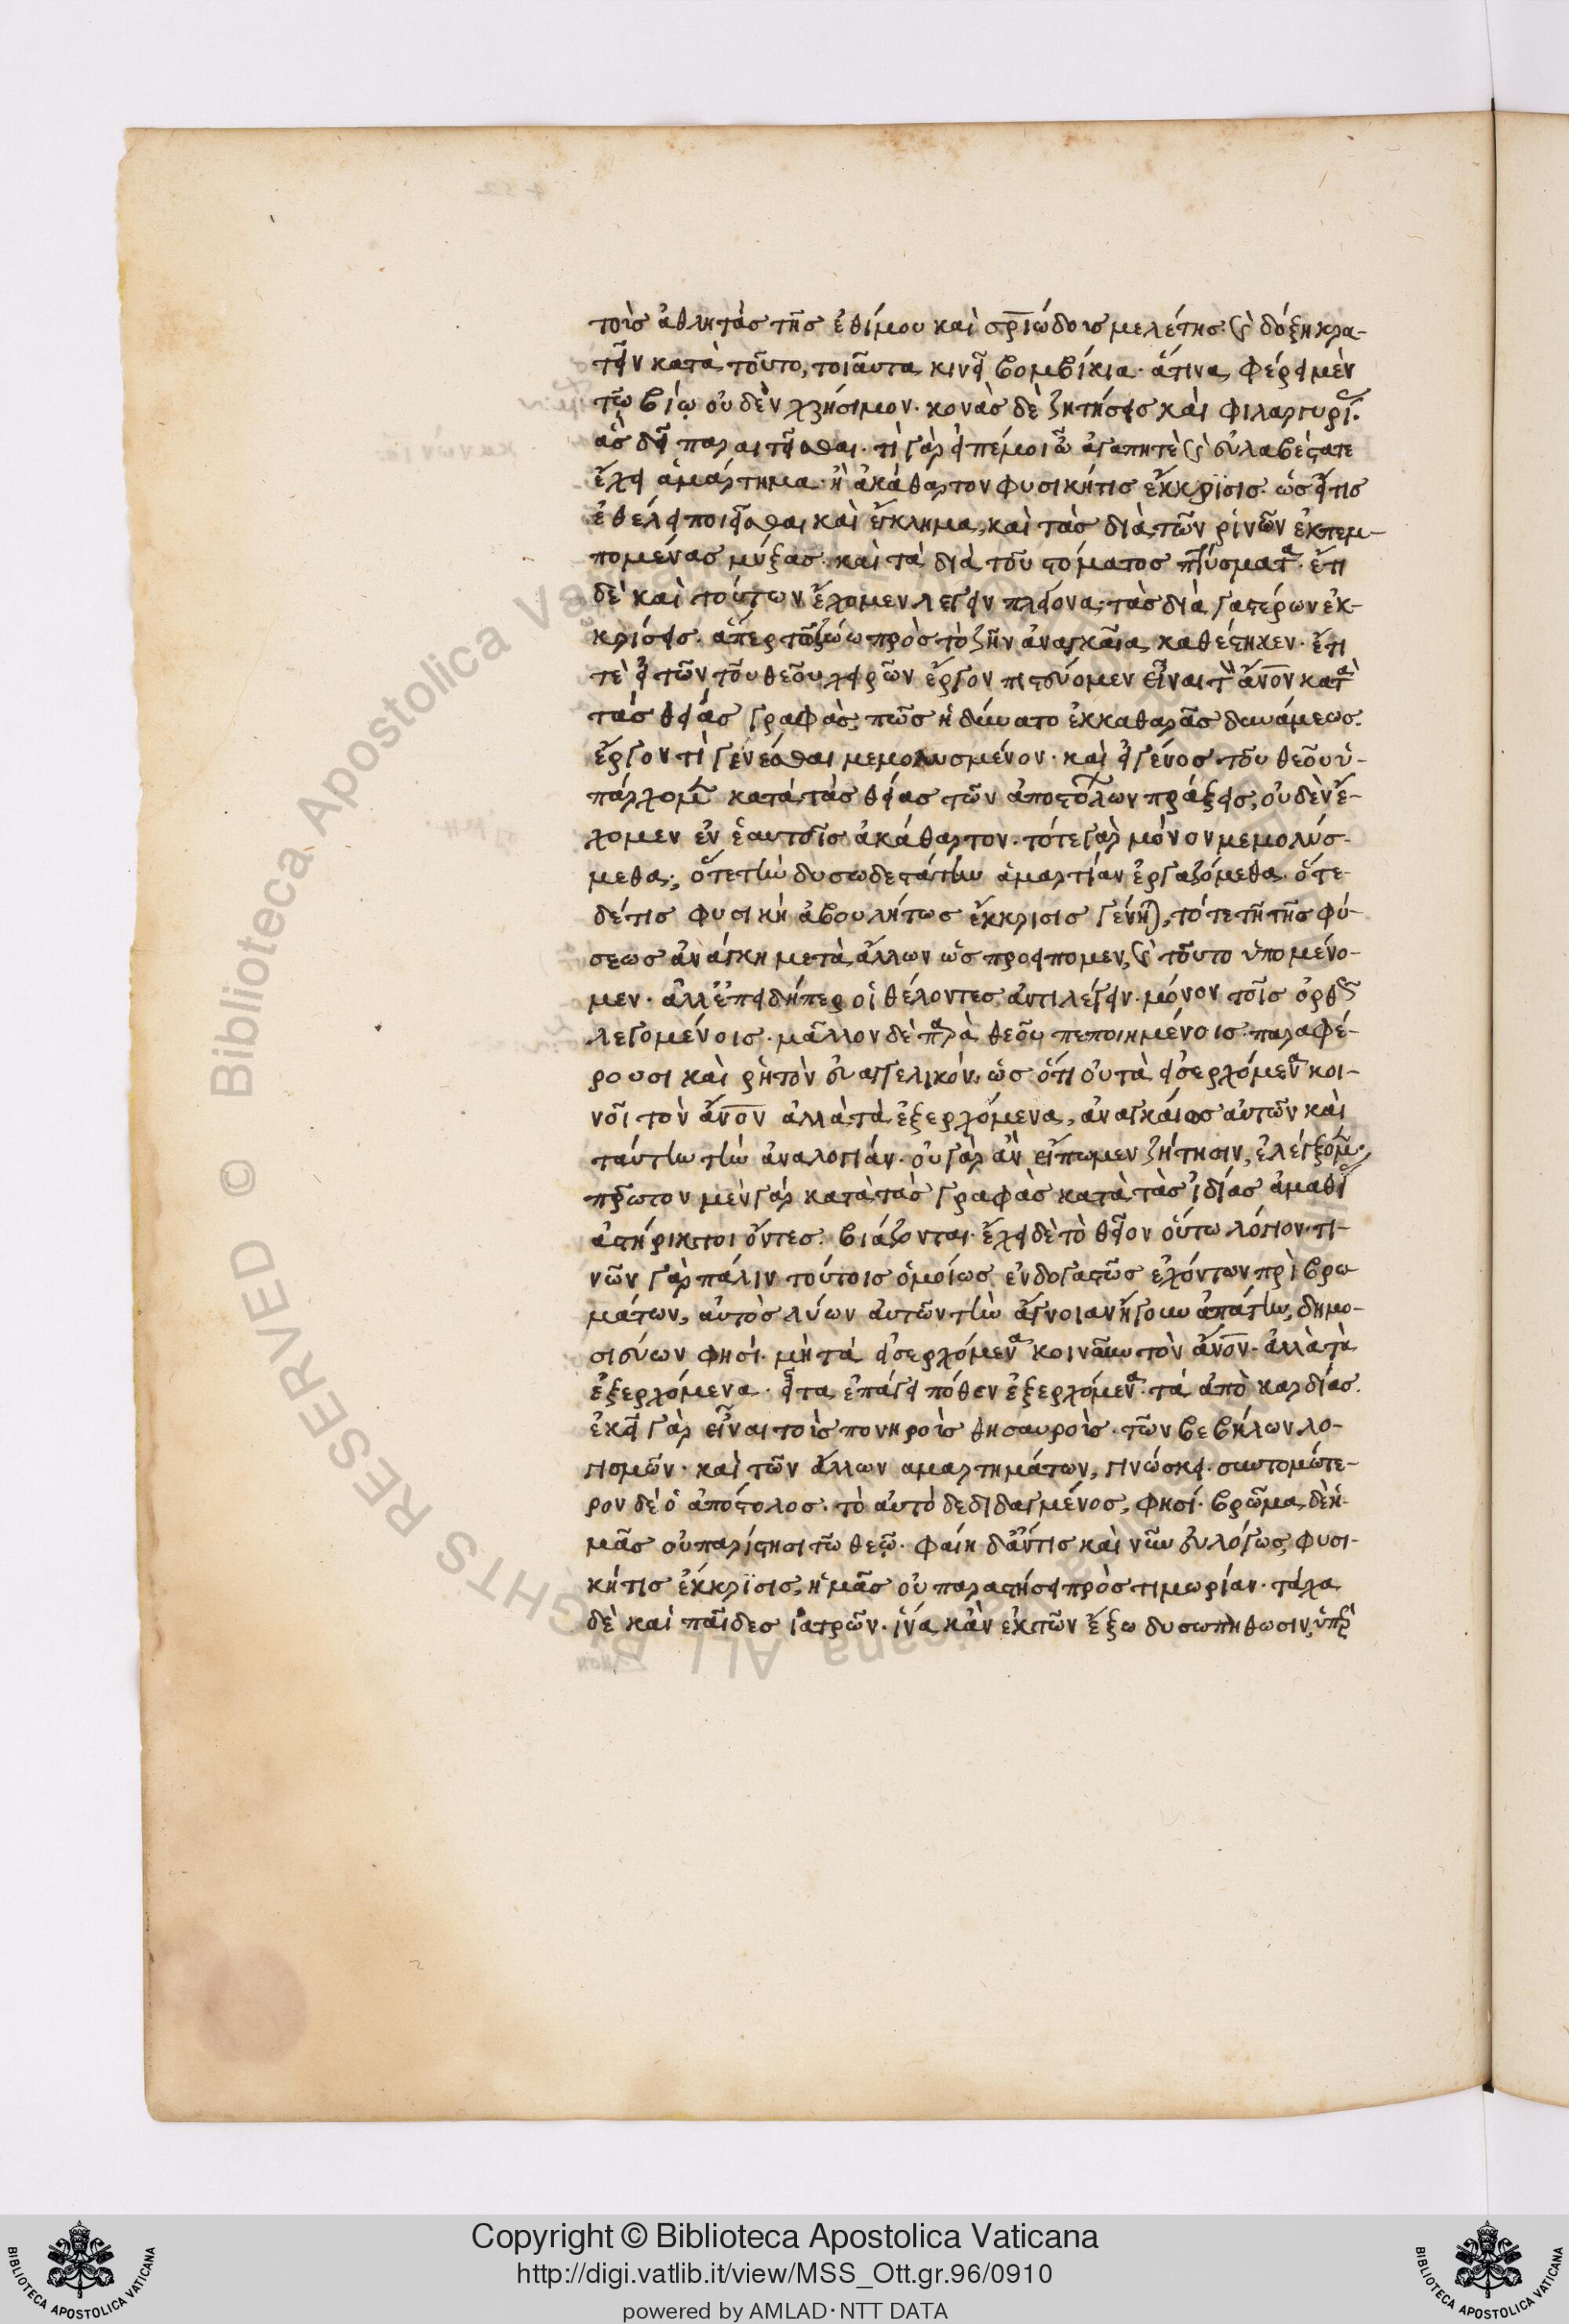 τοὺς ἀθλητὰς τῆς ἐθίμου καὶ σρ̅ιώδους μελέτης· καὶ δόξη κρα-
τεῖν κατὰ τοῦτο, τοιαῦτα κινεῖ βομβίκια· ἅτινα φέρει μὲν
τῶ βίω οὐδὲν χρήσιμον· κονὰς δὲ ζητήσεις καὶ φιλαργυρί·
ἃς δεῖ παραιτεῖσθαι· τί γὰρ εἰπέ μοι ὦ ἀγαπητὲ καὶ εὐλαβέστατε
ἔχει ἁμάρτημα· ἢ ἀκάθαρτον φυσική τις ἔκκρϊσις· ὡς εἴ τις
ἐθέλει ποιεῖσθαι καὶ ἔγκλημα, καὶ τὰς διὰ τῶν ῥινῶν ἐκπεμ-
πομένας μύξας· καὶ τὰ διὰ τοῦ στόματος πτύσματα· ἔτι
δὲ καὶ τούτων ἔχομεν λέγειν πλείονα, τὰς διὰ γαστέρων ἐκ-
κρίσεις· ἅπερ τῶ ζώω πρὸς τὸ ζῆν ἀναγκαῖα καθέστηκεν· ἔτι
τὲ εἰ τῶν τοῦ θεοῦ χειρῶν ἔργον πιστεύομεν εἶναι τὸν ἄν̅ο̅ν κατὰ
τὰς θείας γραφὰς, πῶς ἠδύνατο ἐκ καθαρᾶς δυνάμεως
ἔργον τὶ γενέσθαι μεμολυσμένον· καὶ εἰ γένος τοῦ θεοῦ ὑ-
πάρχομεν κατὰ τὰς θείας τῶν ἀποστόλων πράξεις, οὐδὲν ἔ-
χομεν ἐν ἑαυτοῖς ἀκάθαρτον· τότε γὰρ μόνον μεμολύσ-
μεθα, ὅτε τὴν δυσωδεστάτην ἁμαρτίαν ἐργαζόμεθα· ὅτε
δέ τις φυσικὴ ἀβουλήτως ἔκκρισις γένηται, τότε τῆ τῆς φύ-
σεως ἀνάγκη μετὰ ἄλλων ὡς προείπομεν, καὶ τοῦτο ὑπομένο-
μεν· ἀλλ' ἐπειδήπερ οἱ θέλοντες ἀντιλέγειν· μόνον τοῖς ὀρθῶς
λεγομένοις· μᾶλλον δὲ παρὰ θεοῦ πεποιημένοις· παραφέ-
ρουσι καὶ ῥητὸν εὐαγγελικὸν, ὡς ὅτι οὐ τὰ εἰσερχόμενα κοι-
νοῖ τὸν ἄν̅ο̅ν ἀλλὰ τὰ ἐξερχόμενα, ἀναγκαίως αὐτῶν καὶ
ταύτην τὴν ἀναλογίαν· οὐ γὰρ ἂν εἴπωμεν ζήτησιν, ἐλέγξομεν,
πρῶτον μὲν γὰρ κατὰ τὰς γραφὰς κατὰ τὰς ἰδίας ἀμαθί
ἀστήρικτοι ὄντες· βιάζονται· ἔχει δὲ τὸ θεῖον οὕτω λόγιον· τι-
νῶν γὰρ πάλιν τούτοις ὁμοίως ἐνδοιαστῶς ἐχόντων περὶ βρω
μάτων, αὐτὸς λύων αὐτῶν τὴν ἄγνοιαν ἤγουν ἀπάτην, δημο-
σιεύων φησί· μὴ τὰ εἰσερχόμενα κοινοῦν τὸν ἄν̅ο̅ν· ἀλλὰ τὰ
ἐξερχόμενα· εἶτα ἐπάγει πόθεν ἐξερχόμενα· τὰ ἀπὸ καρδίας
ἐκεῖ γὰρ εἶναι τοὺς πονηροὺς θησαυροὺς· τῶν βεβήλων λο-
γισμῶν· καὶ τῶν ἄλλων αμαρτημάτων, γινώσκει· συντομώτε-
ρον δὲ ὁ ἀπόστολος· τὸ αὐτὸ δεδιδαγμένος, φησί· βρῶμα δὲ ἡ-
μᾶς οὐ παρίστησι τῶ θεῶ· φαίη δ' ἄν τις καὶ νῦν εὐλόγως, φυσι-
κή τις ἔκκρϊσις, ἡμᾶς οὐ παραστήσει πρὸς τιμωρίαν· τάχα
δὲ καὶ παῖδες ἰατρῶν· ἵνα κἂν ἐκ τῶν ἔξω δυσωπηθῶσιν, ὑπὲρ
Copyright © Biblioteca Apostolica Vaticana
http://digi.vatlib.it/view/MSS_Ott.gr.96/0910
powered by AMLAD·NTT DATA